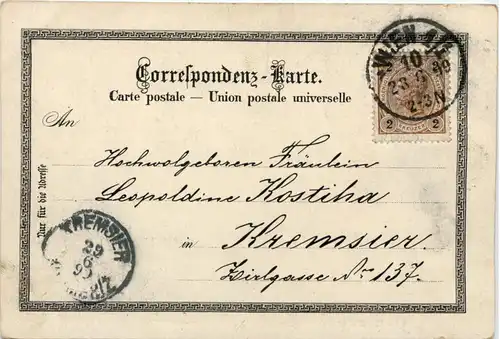 Correspondenz-Karte.
Carte postale — Union postale universelle
An
Hochwolgeboren Fräulein
Leopoldine Kostiha
in Kremsier.
Zirlgasse No 137.
Nur für die Adresse
WIEN
10
2-3N
2 KREUZER 2
KREMSIER
29
6